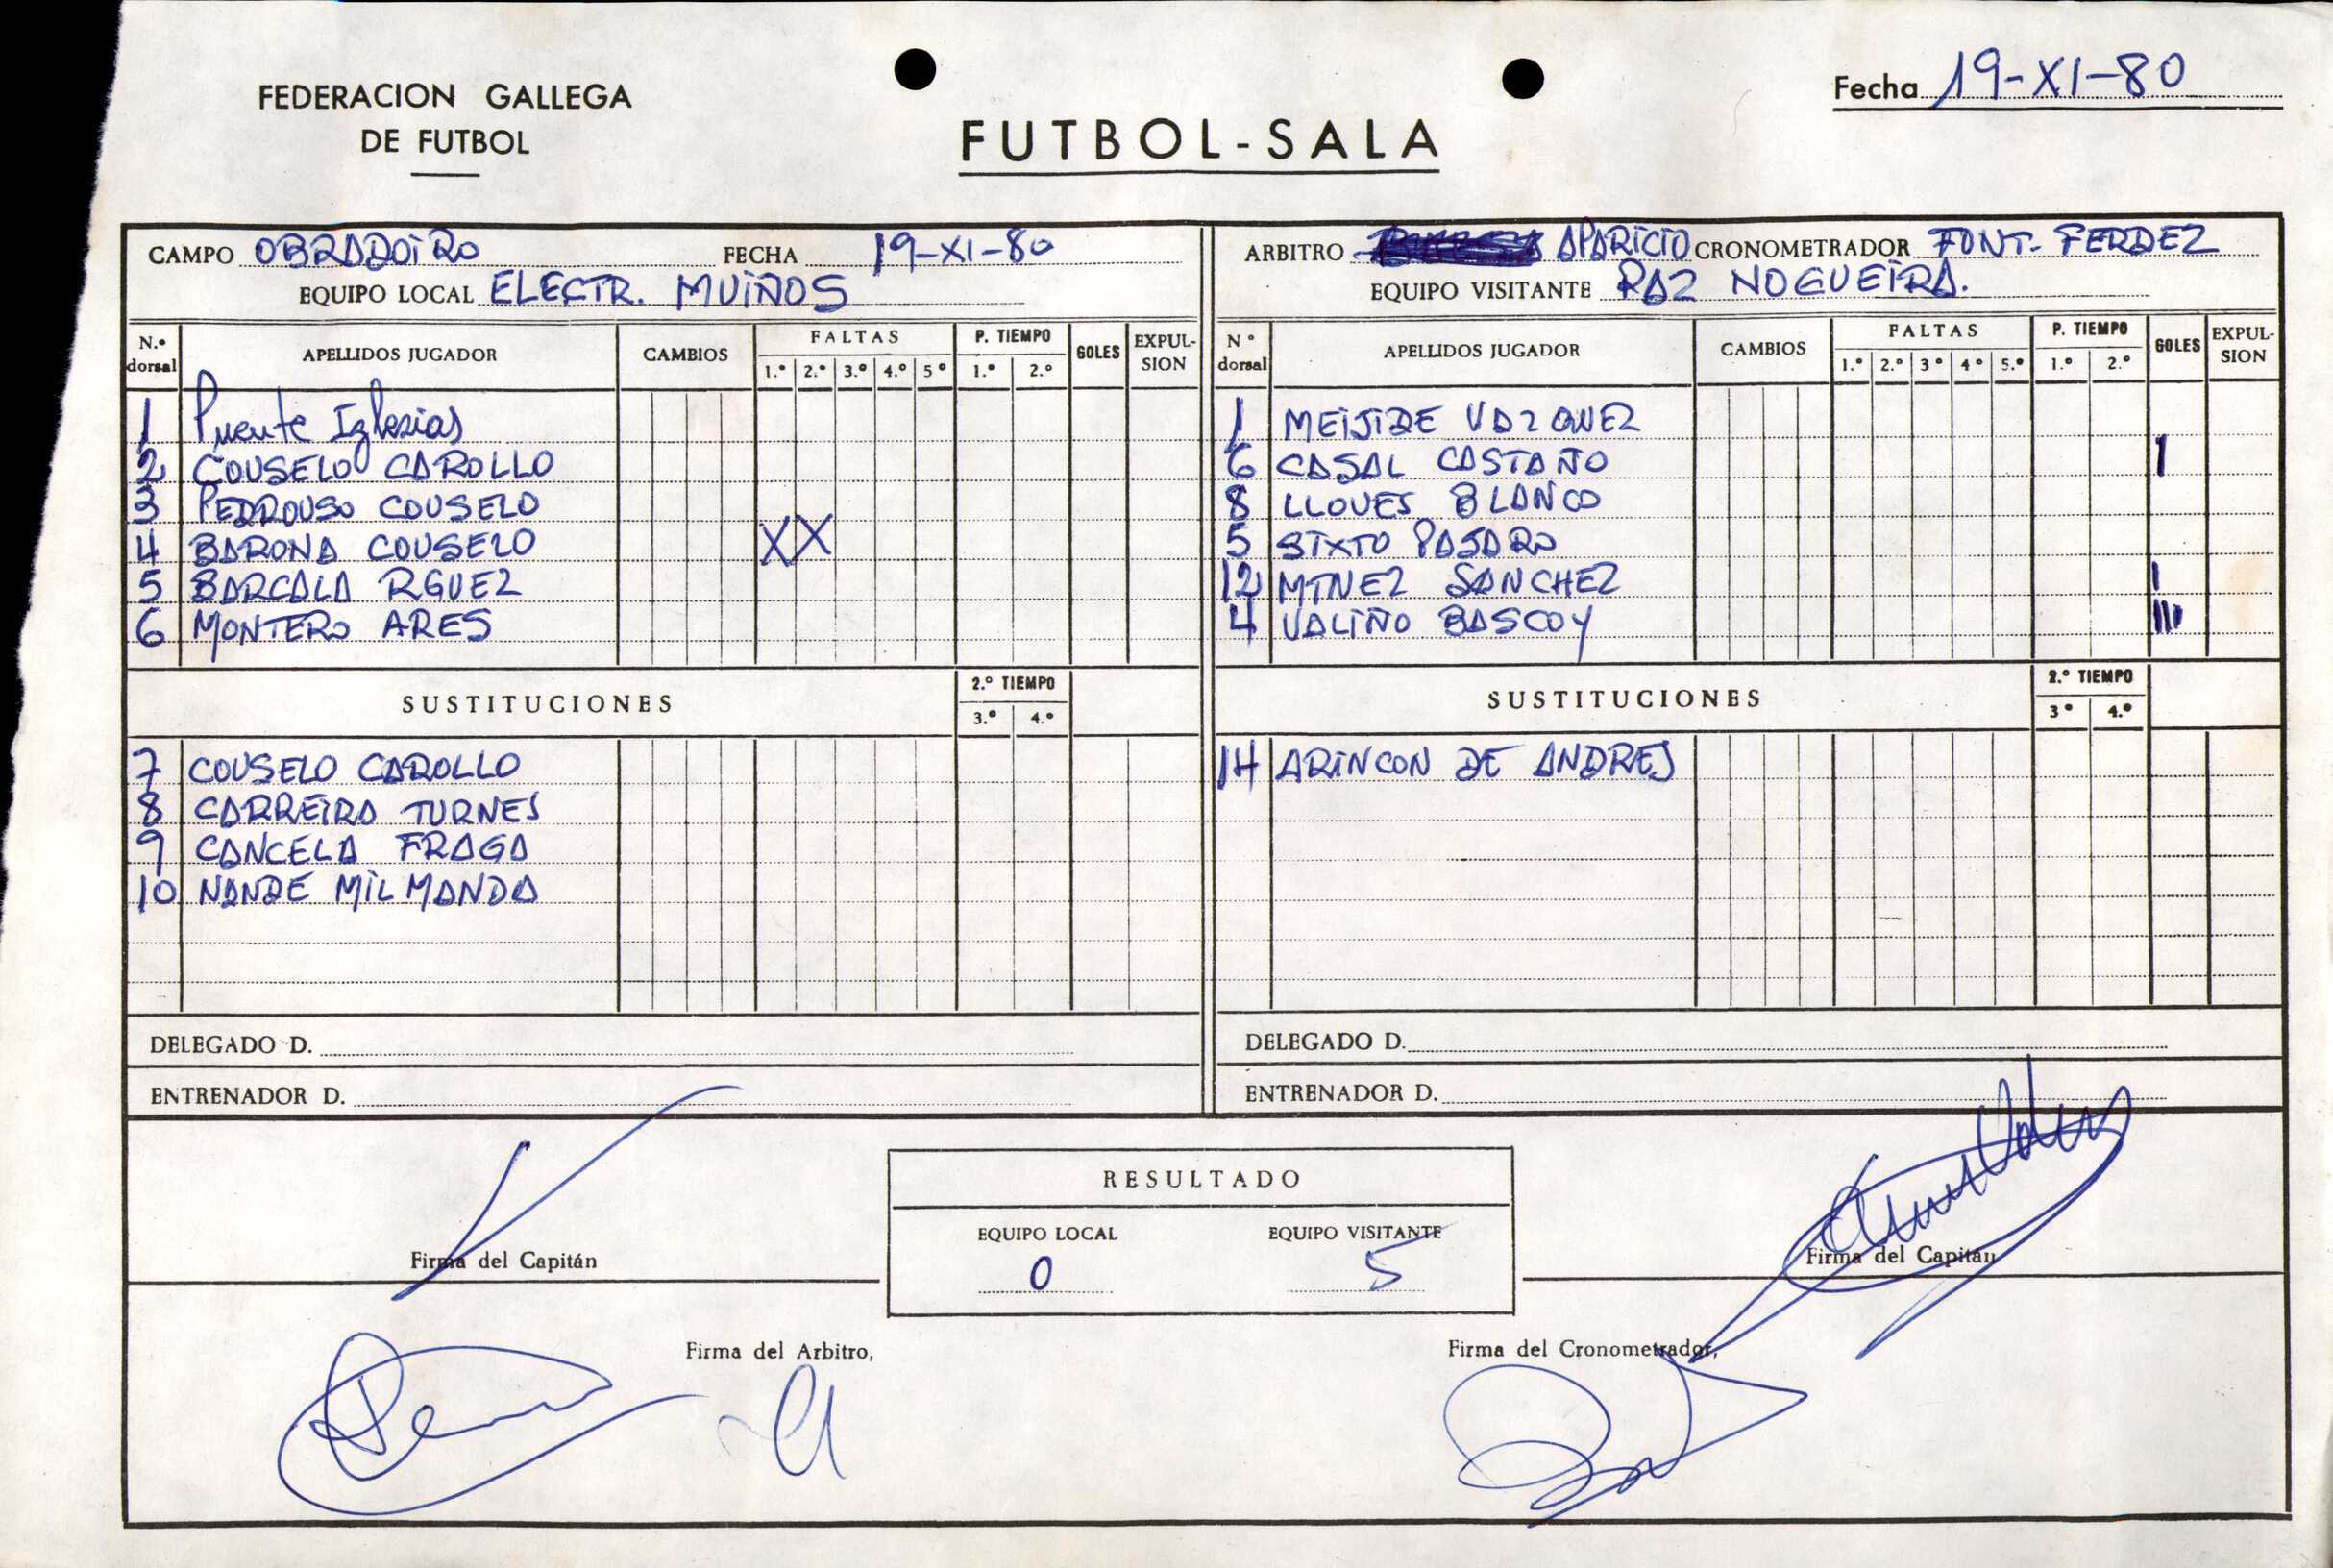 FEDERACION GALLEGA
DE FUTBOL
FUTBOL-SALA
Fecha 19-XI-80
CAMPO OBRADOIRO FECHA 19-XI-80
EQUIPO LOCAL ELECTR. MUIÑOS
N.º dorsal APELLIDOS JUGADOR CAMBIOS FALTAS 1.º 2.º 3.º 4.º 5º P. TIEMPO 1.º 2.º GOLES EXPUL-SION
1 Puente Iglesias
2 COUSELO CAROLLO
3 PEDROUSO COUSELO
4 BARONA COUSELO XX
5 BARCALA RGUEZ
6 MONTERO ARES
SUSTITUCIONES 2.º TIEMPO 3.º 4.º
7 COUSELO CAROLLO
8 CARREIRA TURNES
9 CANCELA FRAGA
10 NANDE MILMANDA
DELEGADO D.
ENTRENADOR D.
ARBITRO APARICIO CRONOMETRADOR FONT- FERDEZ
EQUIPO VISITANTE PAZ NOGUEIRA.
Nº dorsal APELLIDOS JUGADOR CAMBIOS FALTAS 1.º 2.º 3º 4º 5.º P. TIEMPO 1.º 2.º GOLES EXPUL-SION
1 MEIJIDE VAZQUEZ
6 CASAL CASTAÑO I
8 LLOVES BLANCO
5 SIXTO PASARO
12 MTNEZ SANCHEZ I
4 VALIÑO BASCOY III
SUSTITUCIONES 2.º TIEMPO 3º 4.º
14 ARINCON DE ANDRES
DELEGADO D.
ENTRENADOR D.
RESULTADO
EQUIPO LOCAL EQUIPO VISITANTE
0 5
Firma del Capitán
Firma del Capitán
Firma del Arbitro,
Firma del Cronometrador,